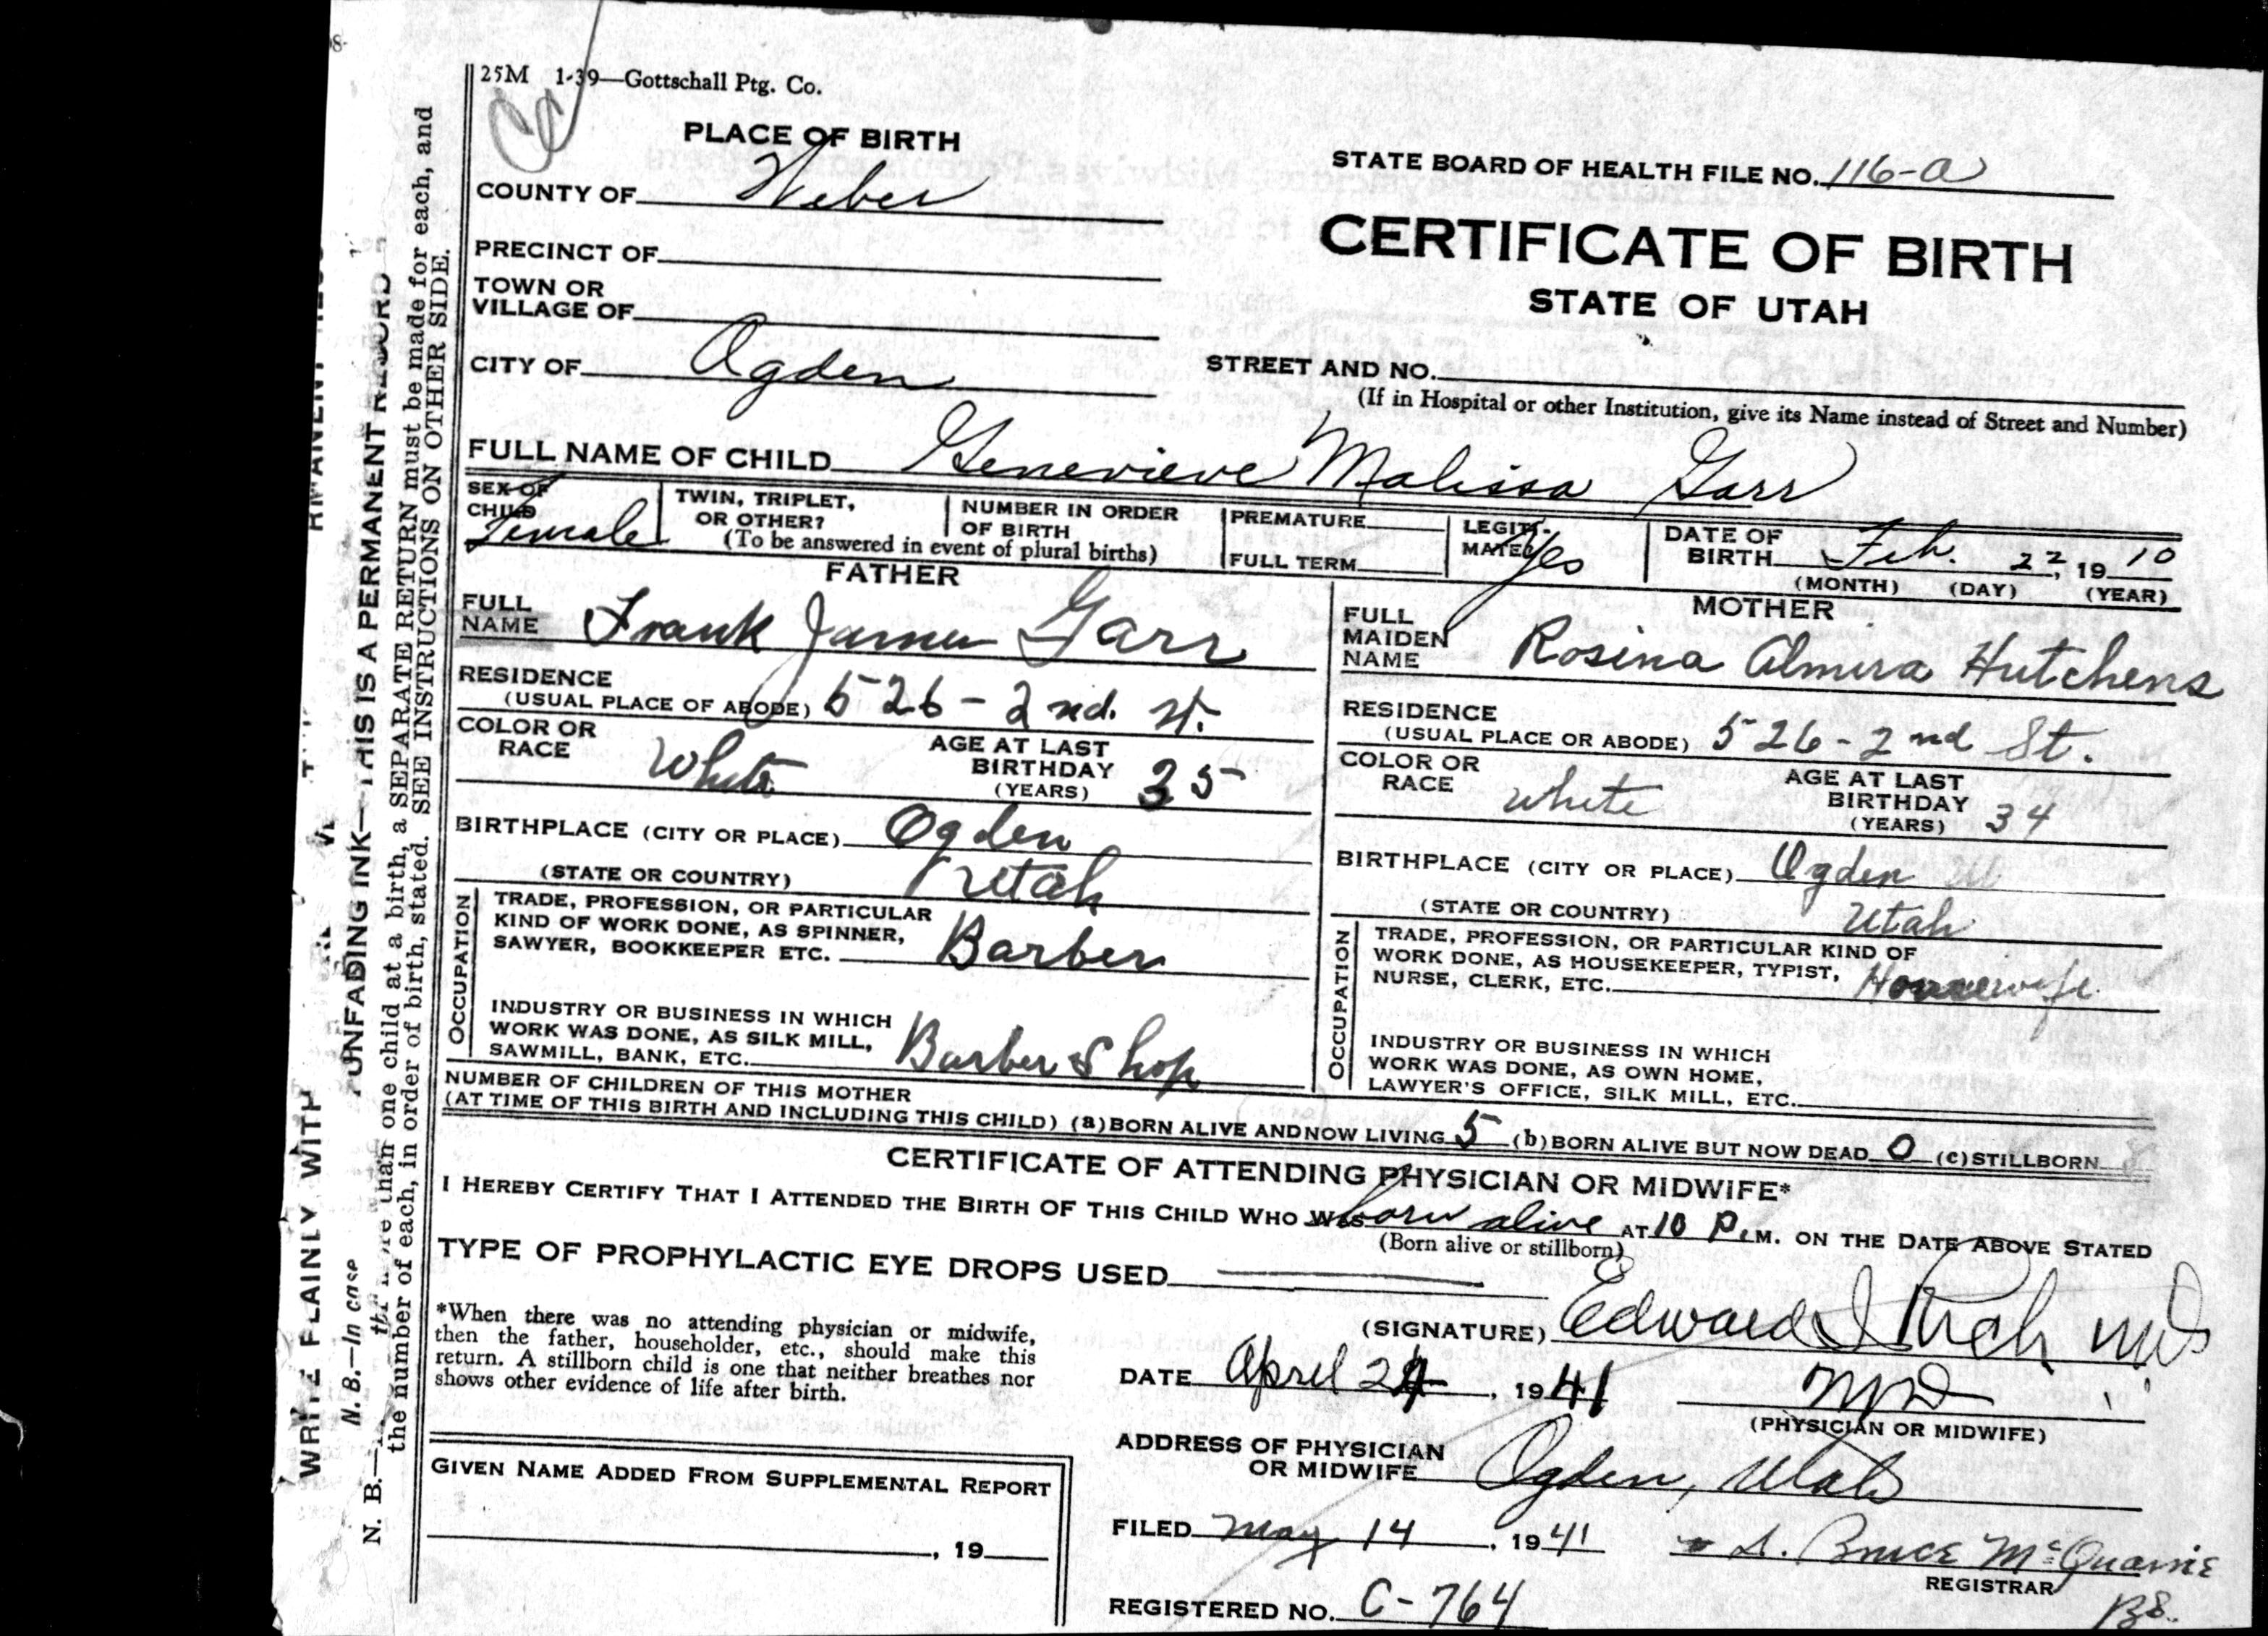 25M 1-39—Gottschall Ptg. Co.
PLACE OF BIRTH
STATE BOARD OF HEALTH FILE NO. 116-a
COUNTY OF Weber
CERTIFICATE OF BIRTH
STATE OF UTAH
PRECINCT OF
TOWN OR
VILLAGE OF
CITY OF Ogden
STREET AND NO.
(If in Hospital or other Institution, give its Name instead of Street and Number)
FULL NAME OF CHILD Genevieve Malissa Garr
SEX OF
CHILD Female
TWIN, TRIPLET,
OR OTHER?
NUMBER IN ORDER
OF BIRTH
(To be answered in event of plural births)
PREMATURE
FULL TERM
LEGITI-
MATE? Yes
DATE OF
BIRTH Feb. 22, 1910
(MONTH) (DAY) (YEAR)
FATHER
FULL
NAME Frank James Garr
RESIDENCE
(USUAL PLACE OF ABODE) 526 - 2nd. St.
COLOR OR
RACE White
AGE AT LAST
BIRTHDAY 35
(YEARS)
BIRTHPLACE (CITY OR PLACE) Ogden
(STATE OR COUNTRY) Utah
OCCUPATION
TRADE, PROFESSION, OR PARTICULAR
KIND OF WORK DONE, AS SPINNER,
SAWYER, BOOKKEEPER ETC. Barber
INDUSTRY OR BUSINESS IN WHICH
WORK WAS DONE, AS SILK MILL,
SAWMILL, BANK, ETC. Barber Shop
MOTHER
FULL
MAIDEN
NAME Rosina Almira Hutchens
RESIDENCE
(USUAL PLACE OR ABODE) 526 - 2nd St.
COLOR OR
RACE white
AGE AT LAST
BIRTHDAY 34
(YEARS)
BIRTHPLACE (CITY OR PLACE) Ogden
(STATE OR COUNTRY) Utah
OCCUPATION
TRADE, PROFESSION, OR PARTICULAR KIND OF
WORK DONE, AS HOUSEKEEPER, TYPIST,
NURSE, CLERK, ETC. Housewife
INDUSTRY OR BUSINESS IN WHICH
WORK WAS DONE, AS OWN HOME,
LAWYER'S OFFICE, SILK MILL, ETC.
NUMBER OF CHILDREN OF THIS MOTHER
(AT TIME OF THIS BIRTH AND INCLUDING THIS CHILD) (a) BORN ALIVE AND NOW LIVING 5 (b) BORN ALIVE BUT NOW DEAD 0 (c) STILLBORN
CERTIFICATE OF ATTENDING PHYSICIAN OR MIDWIFE*
I HEREBY CERTIFY THAT I ATTENDED THE BIRTH OF THIS CHILD WHO WAS born alive AT 10 P.M. ON THE DATE ABOVE STATED
(Born alive or stillborn)
TYPE OF PROPHYLACTIC EYE DROPS USED
*When there was no attending physician or midwife,
then the father, householder, etc., should make this
return. A stillborn child is one that neither breathes nor
shows other evidence of life after birth.
(SIGNATURE) Edward I Rich MD
DATE April 24, 1941 MD
(PHYSICIAN OR MIDWIFE)
ADDRESS OF PHYSICIAN
OR MIDWIFE Ogden, Utah
GIVEN NAME ADDED FROM SUPPLEMENTAL REPORT
, 19
FILED May 14, 1941
REGISTERED NO. C-764
D. Bruce McQuarrie
REGISTRAR
BB.
WRITE PLAINLY WITH UNFADING INK—THIS IS A PERMANENT RECORD
N. B.—In case
than one child at a birth, a SEPARATE RETURN must be made for each, and
the number of each, in order of birth, stated. SEE INSTRUCTIONS ON OTHER SIDE.